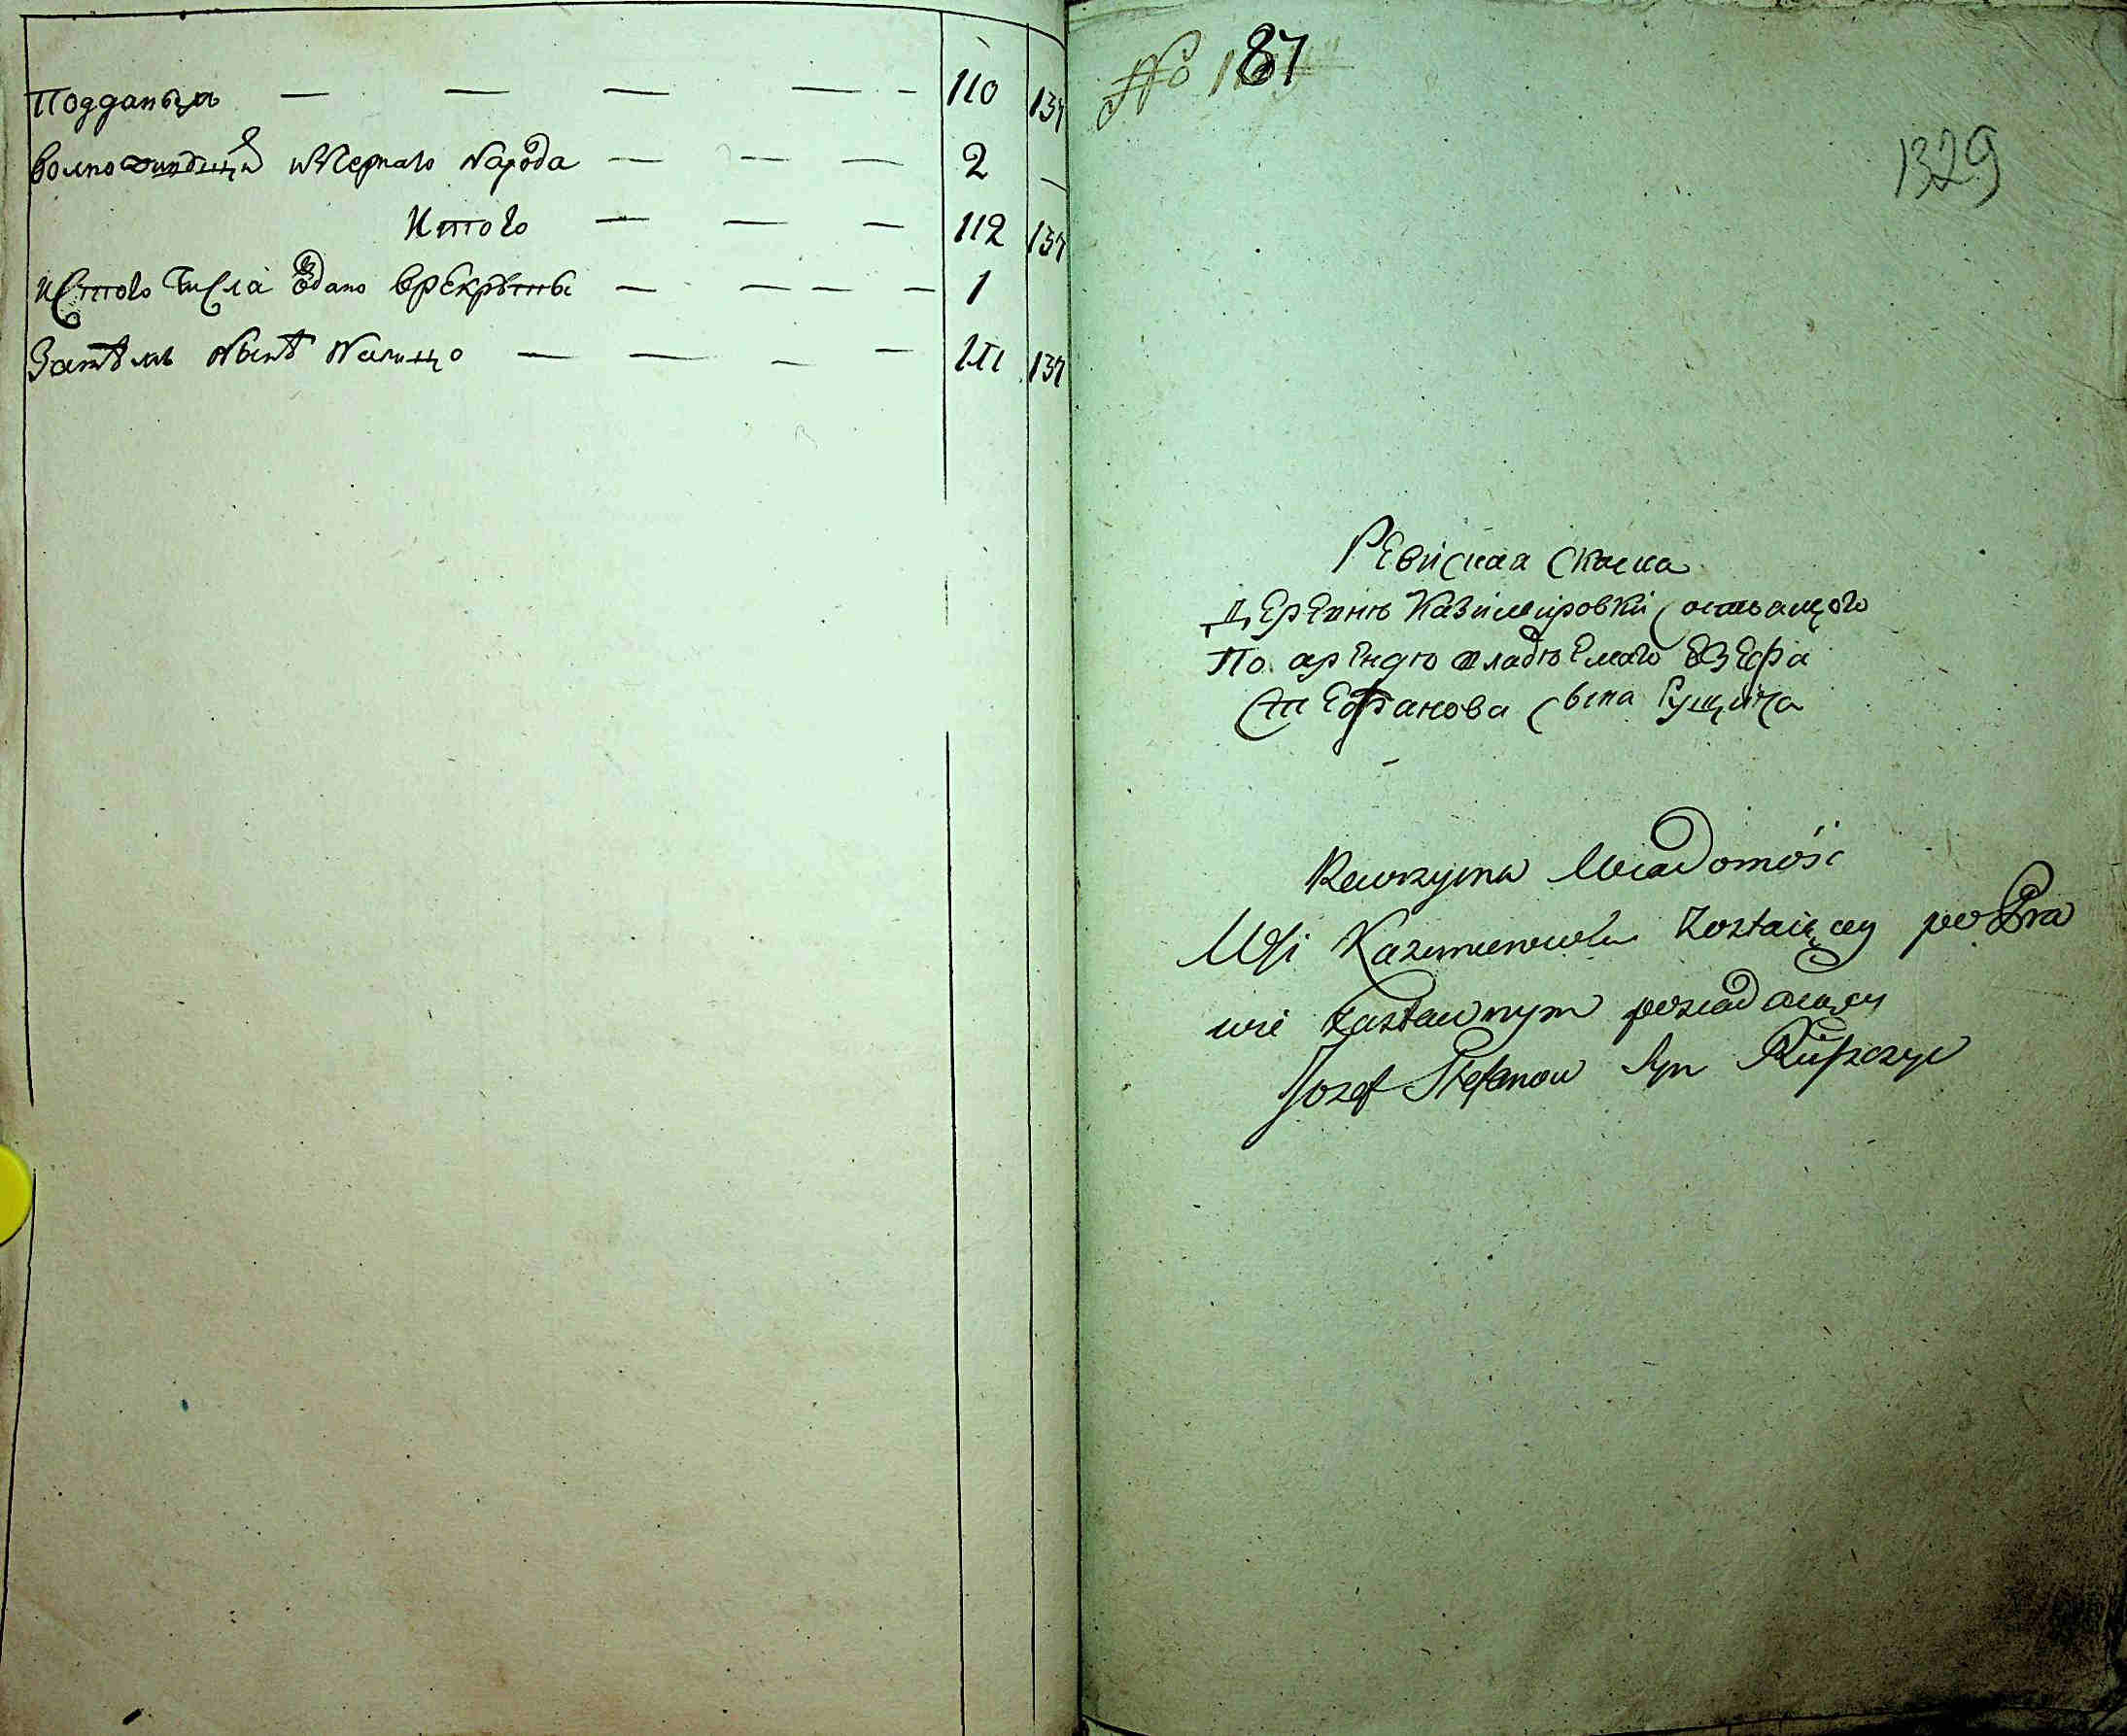 Подданыхъ — — — — - 110 137
Волножиющихъ ис Чернаго Народа — — — 2 —
Итого — — — 112 137
Истого Числа Одано врекруты — — — — 1
Затѣмъ Нынѣ Налицо — — — — 111 137
No 87
1329
Ревиская Скаска
Деревнѣ Казимировки состоящого
По арендю владюемаго Езефа
Стефанова сына Рущица
Rewizyina Wiadomość
Wsi Kazimierowki Zostaiącey po Pra
wie Zastawnym posiadaiący
Jozef Stefanow Syn Ruszczyc